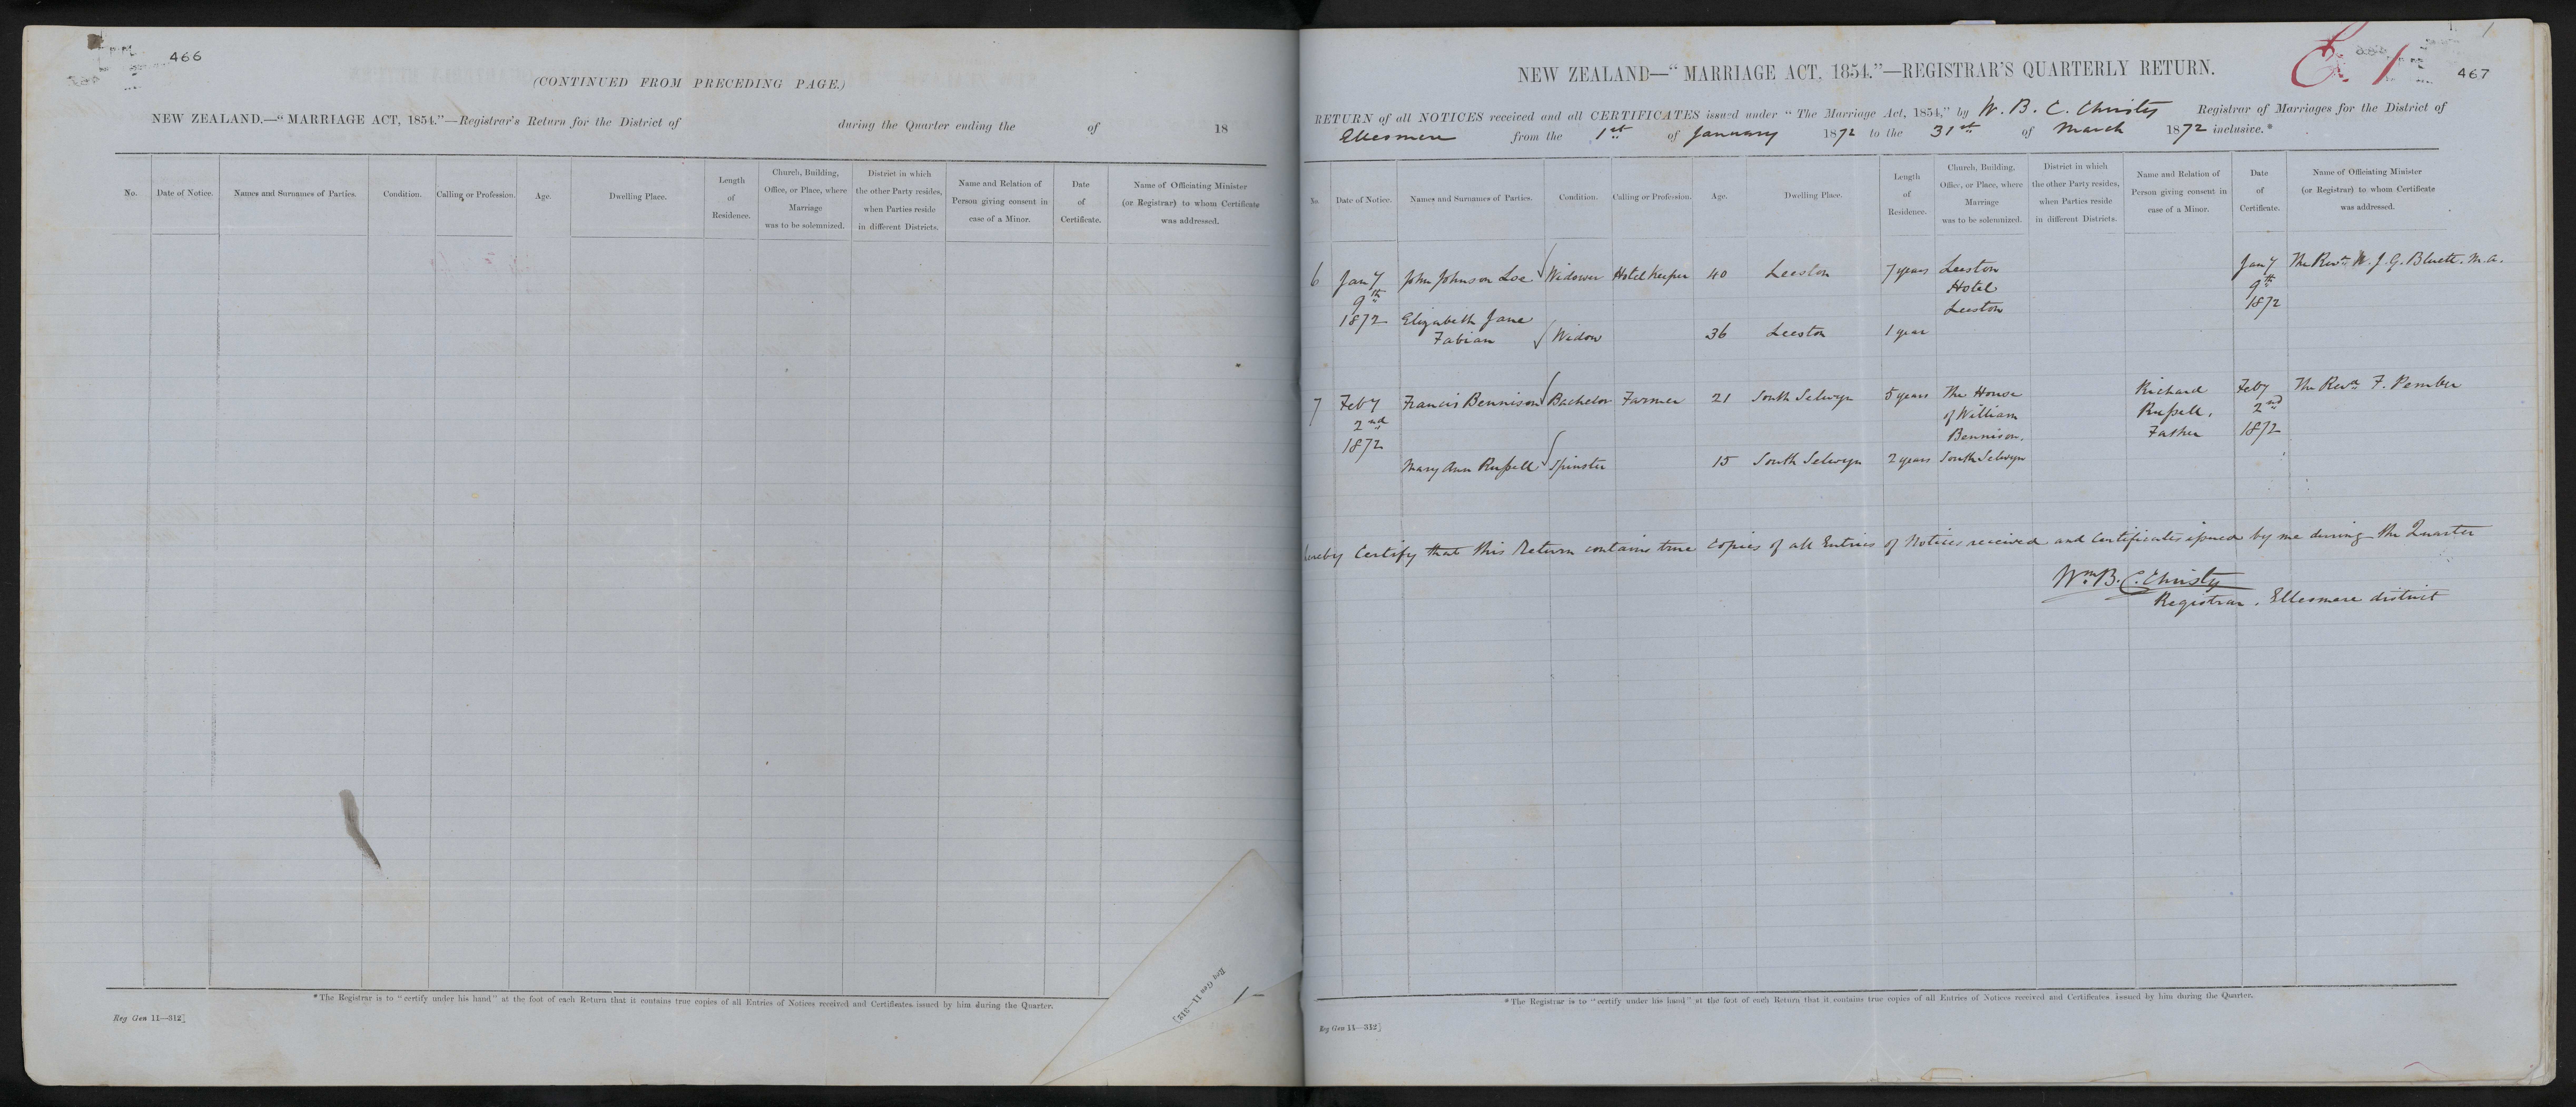 466
(CONTINUED FROM PRECEDING PAGE.)
NEW ZEALAND.—“MARRIAGE ACT, 1854.”—Registrar's Return for the District of during the Quarter ending the of 18
No. Date of Notice. Names and Surnames of Parties. Condition. Calling or Profession. Age. Dwelling Place. Length of Residence. Church, Building, Office, or Place, where Marriage was to be solemnized. District in which the other Party resides, when Parties reside in different Districts. Name and Relation of Person giving consent in case of a Minor. Date of Certificate. Name of Officiating Minister (or Registrar) to whom Certificate was addressed.
*The Registrar is to “certify under his hand” at the foot of each Return that it contains true copies of all Entries of Notices received and Certificates issued by him during the Quarter.
Reg Gen 11—312]
Reg Gen 11—312]
1 –
E. 1
467
NEW ZEALAND—“MARRIAGE ACT, 1854.”—REGISTRAR'S QUARTERLY RETURN.
RETURN of all NOTICES received and all CERTIFICATES issued under “The Marriage Act, 1854,” by W. B. C. Christy Registrar of Marriages for the District of
Ellesmere from the 1st of January 1872 to the 31st of March 1872 inclusive.*
No Date of Notice. Names and Surnames of Parties. Condition. Calling or Profession. Age. Dwelling Place. Length of Residence. Church, Building, Office, or Place, where Marriage was to be solemnized. District in which the other Party resides, when Parties reside in different Districts. Name and Relation of Person giving consent in case of a Minor. Date of Certificate. Name of Officiating Minister (or Registrar) to whom Certificate was addressed.
6 Jany John Johnson Loe Widower Hotel Keeper 40 Leeston 7 years Leeston Jany The Revd W. J. G. Bluett. M.A.
9th Hotel 9th
1872 Elizabeth Jane Leeston 1872
Fabian Widow 36 Leeston 1 year
7 Feby Francis Bennison Bachelor Farmer 21 South Selwyn 5 years The House Richard Feby The Revd F. Pember
2nd of William Russell, 2nd
1872 Bennison. Father 1872
Mary Ann Russell Spinster 15 South Selwyn 2 years South Selwyn
hereby Certify that this Return contains true Copies of all Entries of Notices received and Certificates issued by me during the Quarter
Wm. B. C. Christy
Registrar. Ellesmere district
*The Registrar is to “certify under his hand” at the foot of each Return that it contains true copies of all Entries of Notices received and Certificates issued by him during the Quarter.
Reg Gen 11—312]